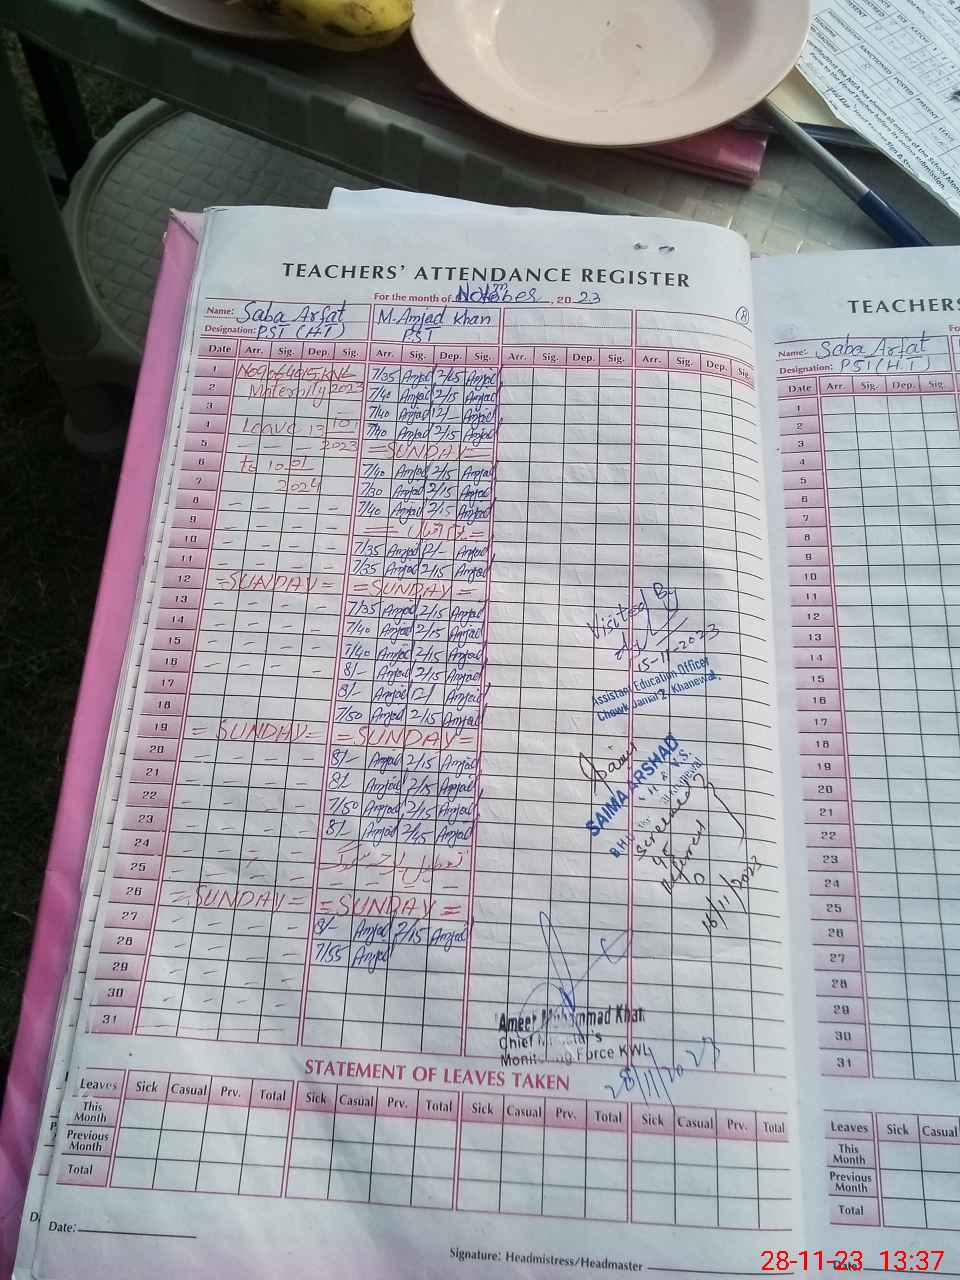 TEACHERS' ATTENDANCE REGISTER
For the month of November, 20 23
Name: Saba Arfat M. Amjad Khan
Designation: PST (H.T) PST
Date Arr. Sig. Dep. Sig. Arr. Sig. Dep. Sig. Arr. Sig. Dep. Sig. Arr. Sig. Dep. Sig.
1 7/35 Amjad 2/15 Amjad
2 Maternity 2023 7/40 Amjad 2/15 Amjad
3 7/40 Amjad 12/- Amjad
4 Leave 13 10 7/40 Amjad 2/15 Amjad
5 - - - 2023 =SUNDAY=
6 to 10.01 7/40 Amjad 2/15 Amjad
7 2024 7/30 Amjad 2/15 Amjad
8 - - - - 7/40 Amjad 2/15 Amjad
9 - - - -
10 - - - - 7/35 Amjad 12/- Amjad
11 - - - - 7/35 Amjad 2/15 Amjad
12 =SUNDAY= =SUNDAY=
13 - - - - 7/35 Amjad 2/15 Amjad
14 - - - - 7/40 Amjad 2/15 Amjad
15 - - - - 7/40 Amjad 2/15 Amjad
16 - - - - 8/- Amjad 2/15 Amjad
17 - - - - 8/- Amjad 12/ Amjad
18 - - - - 7/50 Amjad 2/15 Amjad
19 =SUNDAY= =SUNDAY=
20 - - - - 8/- Amjad 2/15 Amjad
21 - - - - 8/ Amjad 2/15 Amjad
22 - - - - 7/50 Amjad 2/15 Amjad
23 - - - - 8/- Amjad 2/15 Amjad
24 - - - -
25 - - - - - - - -
26 =SUNDAY= =SUNDAY=
27 - - - - 8/- Amjad 2/15 Amjad
28 - - - - 7/55 Amjad
29 - - - -
30 - - - -
31
Visited By
15-11-2023
Assistant Education Officer
Chowk Jamal 2, Khanewal.
Saima
SAIMA ARSHAD
Screened
45
Referred
0
16/11/2023
Ameer Muhammad Khan
Chief Minister's
Monitoring Force KWL
28/11/2023
STATEMENT OF LEAVES TAKEN
Leaves Sick Casual Prv. Total Sick Casual Prv. Total Sick Casual Prv. Total Sick Casual Prv. Total
This Month
Previous Month
Total
Date:
Signature: Headmistress/Headmaster
TEACHERS
Name: Saba Arfat
Designation: PST (H.T)
Date Arr. Sig. Dep. Sig.
1
2
3
4
5
6
7
8
9
10
11
12
13
14
15
16
17
18
19
20
21
22
23
24
25
26
27
28
29
30
31
Leaves Sick Casual
This Month
Previous Month
Total
Date
28-11-23 13:37